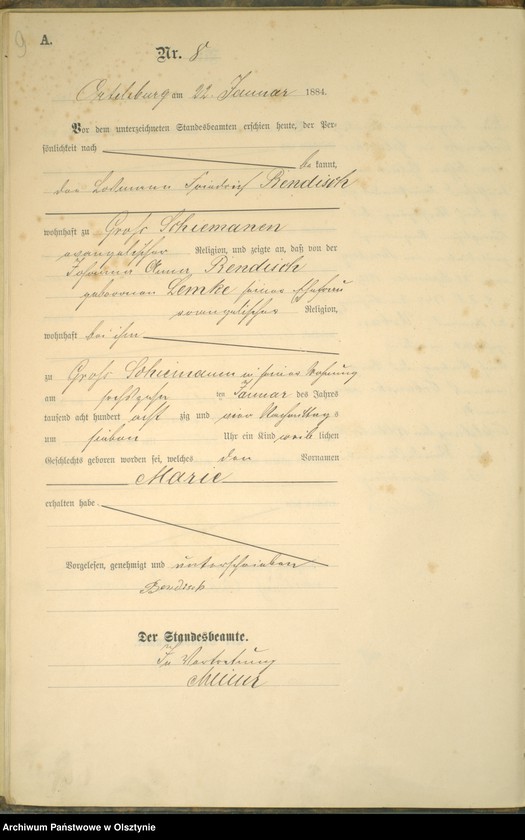 9
A.
Nr. 8
Ortelsburg am 22 Januar 1884.
Vor dem unterzeichneten Standesbeamten erschien heute, der Per-
sönlichkeit nach
be kannt,
der Losmann Friedrich Bendisch
wohnhaft zu Groß Schiemanen
evangelischer Religion, und zeigte an, daß von der
Johanna Bendisch
geborenen Lemke seiner Ehefrau
evangelischer Religion,
wohnhaft bei ihm
zu Groß Schiemanen in seiner Wohnung
am sechszehn ten Januar des Jahres
tausend acht hundert acht zig und vier Nachmittags
um sieben Uhr ein Kind weib lichen
Geschlechts geboren worden sei, welches den Vornamen
Marie
erhalten habe.
Vorgelesen, genehmigt und unterschrieben
Bendisch
Der Standesbeamte.
In Vertretung
Archiwum Państwowe w Olsztynie